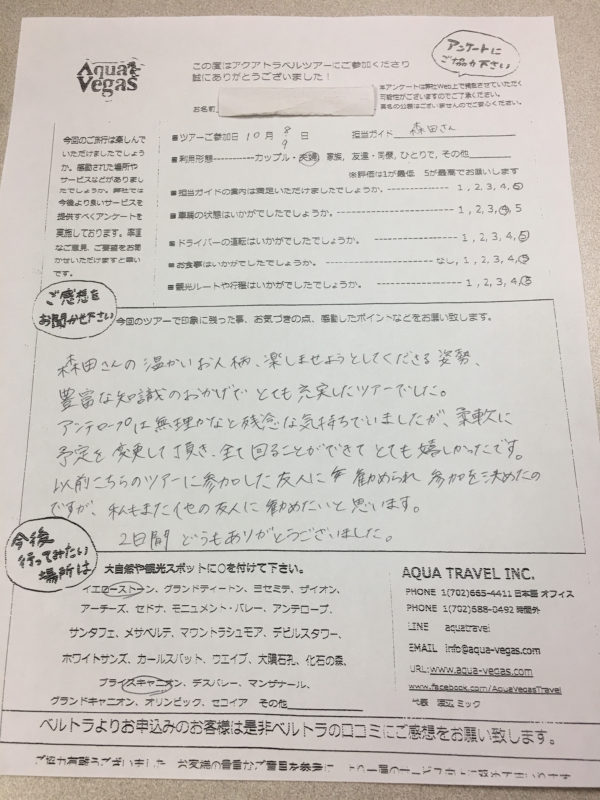 Aqua Vegas
この度はアクアトラベルツアーにご参加くださり
誠にありがとうございました！
アンケートに
ご協力下さい
本アンケートは弊社Web上で掲載させていただく
可能性がございますのでご了承ください。
実名の公表はございませんのでご安心ください。
お名前
今回のご旅行は楽しんで
いただけましたでしょう
か。感動された場所や
サービスなどがありまし
たでしょうか。弊社では
今後より良いサービスを
提供すべくアンケートを
実施しております。率直
なご意見、ご要望をお聞
かせいただけますと幸い
です。
■ツアーご参加日 10月 8 9 日 担当ガイド 森田さん
■利用形態-----------カップル・夫婦, 家族, 友達・同僚, ひとりで, その他
※評価は1が最低 5が最高でお願いします
■担当ガイドの案内は満足いただけましたでしょうか。 ---------------- 1, 2, 3, 4, 5
■車輛の状態はいかがでしたでしょうか。 ---------------- 1, 2, 3, 4, 5
■ドライバーの運転はいかがでしたでしょうか。 ---------------- 1, 2, 3, 4, 5
■お食事はいかがでしたでしょうか。 ---------------- なし, 1, 2, 3, 4, 5
■観光ルートや行程はいかがでしたでしょうか。 ---------------- 1, 2, 3, 4, 5
ご感想を
お聞かせ下さい
今回のツアーで印象に残った事、お気づきの点、感動したポイントなどをお願い致します。
森田さんの温かいお人柄、楽しませようとしてくださる姿勢、
豊富な知識のおかげでとても充実したツアーでした。
アンテロープは無理かなと残念な気持ちでいましたが、柔軟に
予定を変更して頂き、全て回ることができてとても嬉しかったです。
以前こちらのツアーに参加した友人に勧められ参加を決めたの
ですが、私もまた他の友人に勧めたいと思います。
2日間 どうもありがとうございました。
今後
行ってみたい
場所は
大自然や観光スポットに○を付けて下さい。
イエローストーン、グランドティートン、ヨセミテ、ザイオン、
アーチーズ、セドナ、モニュメント・バレー、アンテロープ、
サンタフェ、メサベルデ、マウントラシュモア、デビルスタワー、
ホワイトサンズ、カールスバット、ウエイブ、大隕石孔、化石の森、
ブライスキャニオン、デスバレー、マンザナール、
グランドキャニオン、オリンピック、セコイア その他
AQUA TRAVEL INC.
PHONE 1(702)665-4411 日本語 オフィス
PHONE 1(702)688-0492 時間外
LINE aquatravel
EMAIL info@aqua-vegas.com
URL: www.aqua-vegas.com
www.facebook.com/AquaVegasTravel
代表 渡辺 ミック
ベルトラよりお申込みのお客様は是非ベルトラの口コミにご感想をお願い致します。